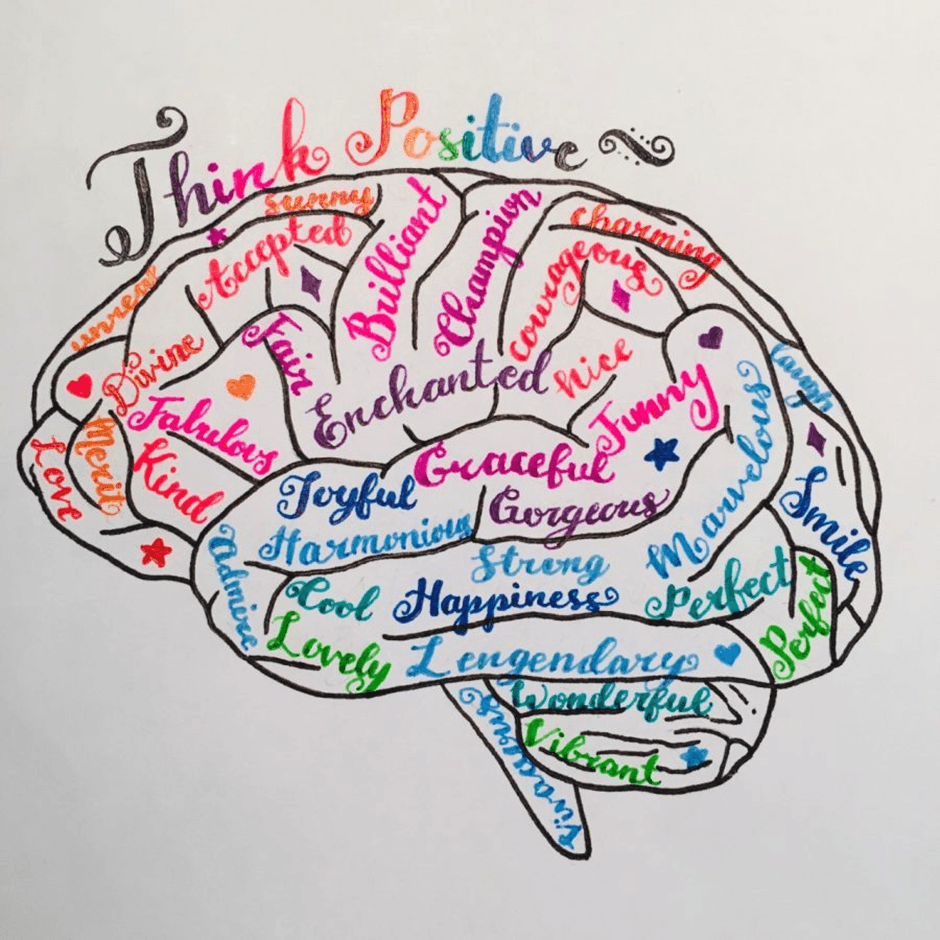 Think Positive
sunny
Accepted
Brilliant
Champion
charming
courageous
unreal
Divine
Fair
Enchanted
Nice
Funny
Fabulous
Kind
Merit
Love
Joyful
Graceful
Gorgeous
Harmonious
Marvelous
laugh
Smile
Admire
Strong
Cool
Happiness
Perfect
Perfect
Lovely
Lengendary
Wonderful
Vibrant